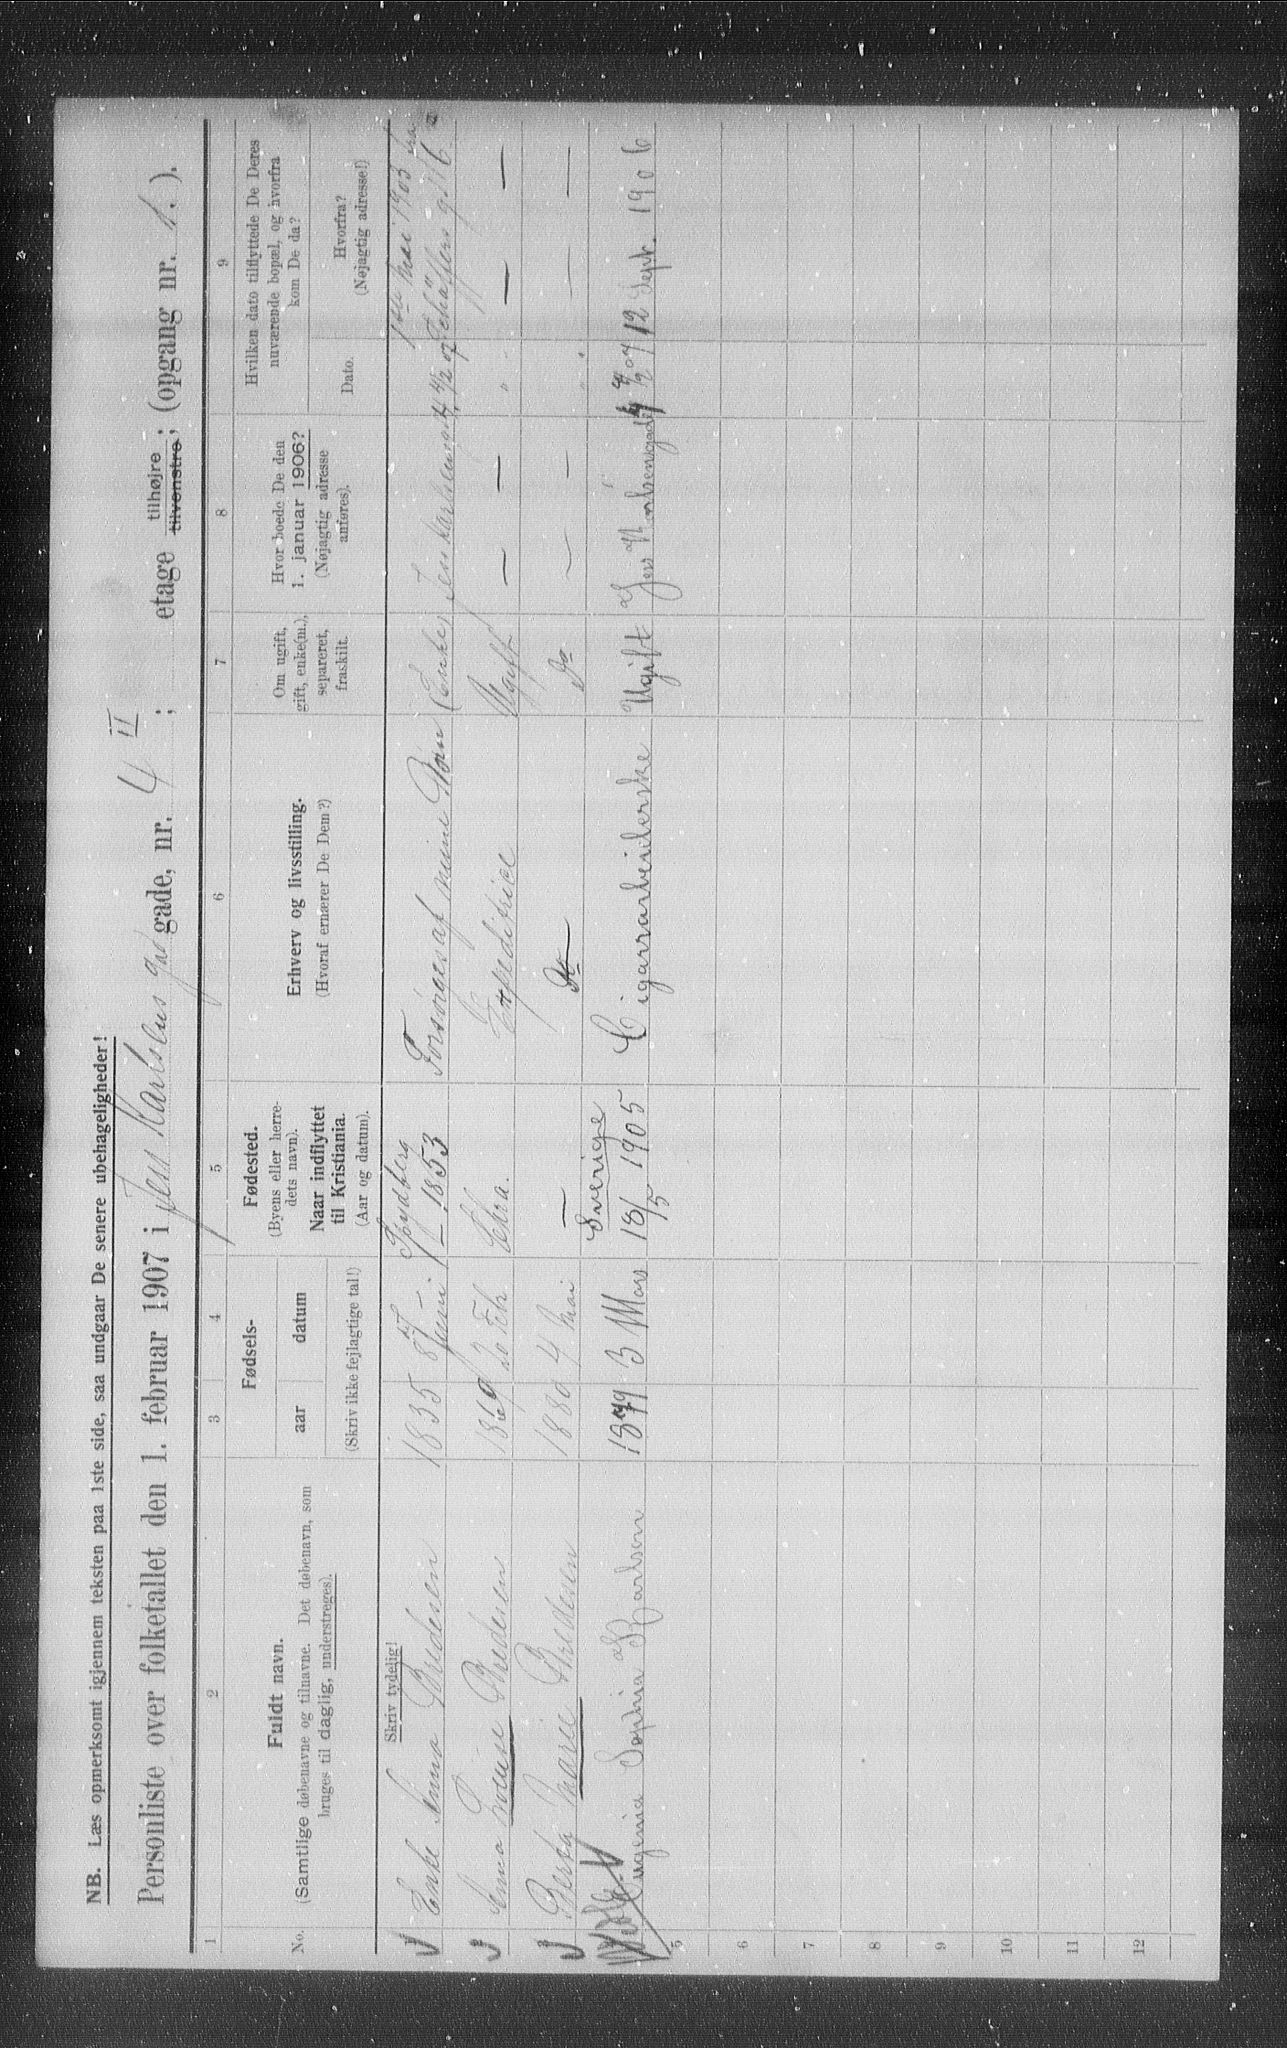 NB. Læs opmerksomt igjennem teksten paa 1ste side, saa undgaar De senere ubehageligheder!
Personliste over folketallet den 1. februar 1907 i Jens Karlsens gade, nr. 4 ; II etage tilhøjre tilvenstre; (opgang nr. ).
1 2 3 4 5 6 7 8 9
No.
Fuldt navn.
(Samtlige døbenavne og tilnavne. Det døbenavn, som
bruges til daglig, understreges).
Skriv tydelig!
Fødsels-
aar datum
(Skriv ikke fejlagtige tal!)
Fødested.
(Byens eller herre-
dets navn).
Naar indflyttet
til Kristiania.
(Aar og datum).
Erhverv og livsstilling.
(Hvoraf ernærer De Dem?)
Om ugift,
gift, enke(m.),
separeret,
fraskilt.
Hvor boede De den
1. januar 1906?
(Nøjagtig adresse
anføres).
Hvilken dato tilflyttede De Deres
nuværende bopæl, og hvorfra
kom De da?
Dato.
Hvorfra?
(Nøjagtig adresse!)
Enke Anna Bredesen 1835 8 Juni Spydberg 1853 Forsørges af mine Børn Enke Jens Karlsens g 4 1ste Mai 1903 fra Schäffers g. 16
Anna Louise Bredesen 1869 20 Feb Chra. Expeditrice Ugift — — " — —
Berta Marie Bredesen 1880 4 Mai — Do Do — — " — —
Eugenia Sophia Karlsen 1879 3 Mars Sverige 18/5 1905 Cigararbeiderske Ugift Jens Karlsensgade 4 12 Sept. 1906
5
6
7
8
9
10
11
12